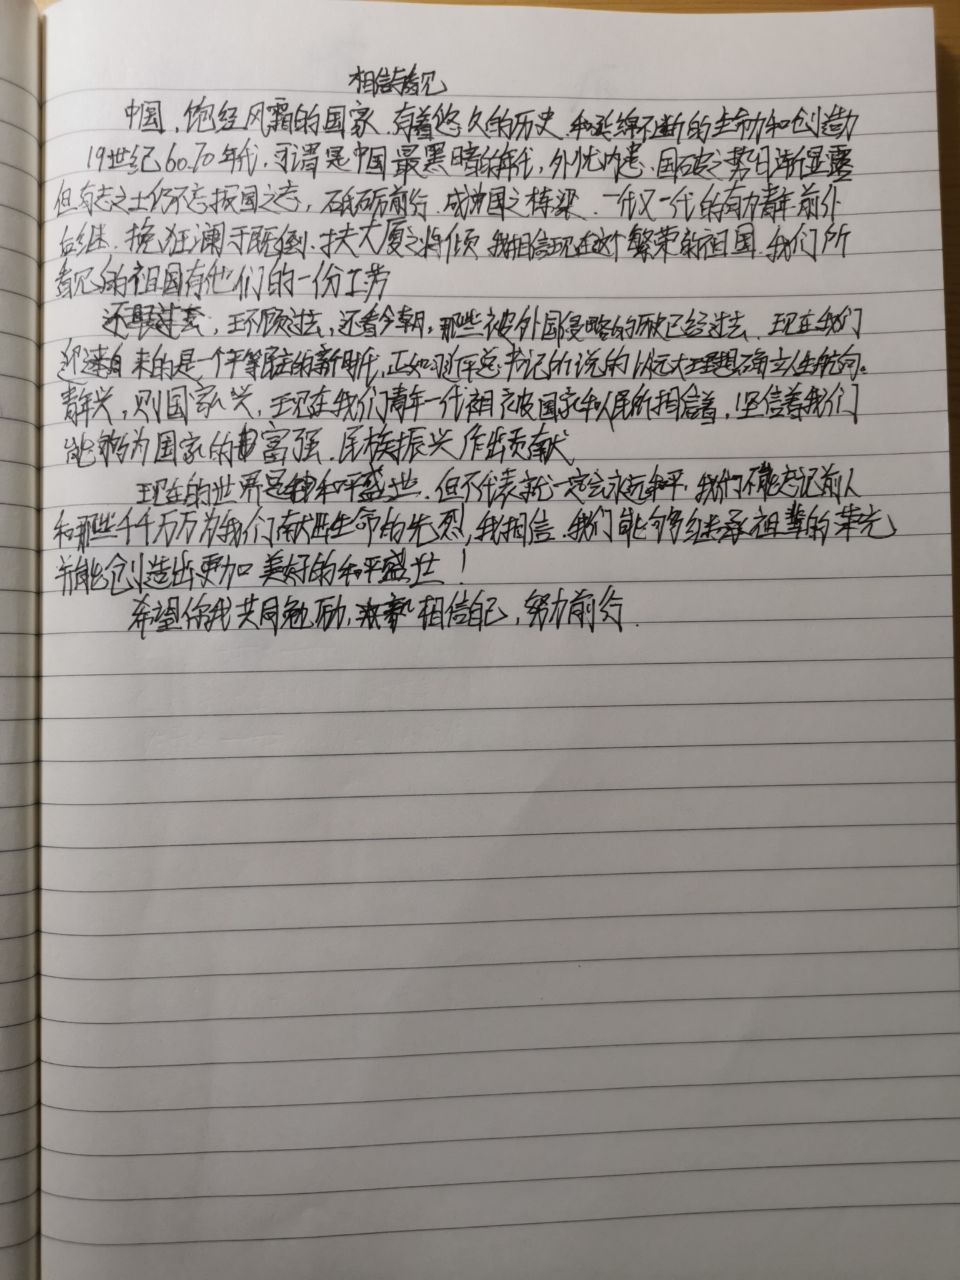 相信看见
中国,饱经风霜的国家,有着悠久的历史,和延绵不断的生命力和创造力
19世纪60.70年代,可谓是中国最黑暗的年代,外忧内患、国破之势日渐显露
但有志之士仍不忘报国之志,砥砺前行,成国之栋梁,一代又一代的有为青年前仆
后继,挽狂澜于既倒、扶大厦之将倾,我相信现在这个繁荣的祖国,我们所
看见的祖国有他们的一份功劳
回顾过去,还看今朝,那些被外国侵略的历史已经过去,现在我们
迎来的是一个平等民主的新时代,正如习近平总书记所说的以远大理想确立人生航向。
青年兴,则国家兴,现在我们青年一代被国家和人民所相信着,坚信着我们
能够为国家的富强、民族振兴作出贡献
现在的世界是和平盛世,但不代表就一定会永远和平,我们不能忘记前人
和那些千千万万为我们献出生命的先烈,我相信,我们能够继承祖辈的荣光
并能创造出更加美好的和平盛世!
希望你我共同勉励,相信自己,努力前行.